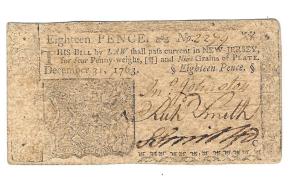 Eighteen PENCE. No 2299
THIS BILL by LAW shall pass current in NEW-JERSEY,
for four Penny-weight, and Nine Grains of PLATE.
December 31, 1763. Eighteen Pence.
Jn Johnston
Smith